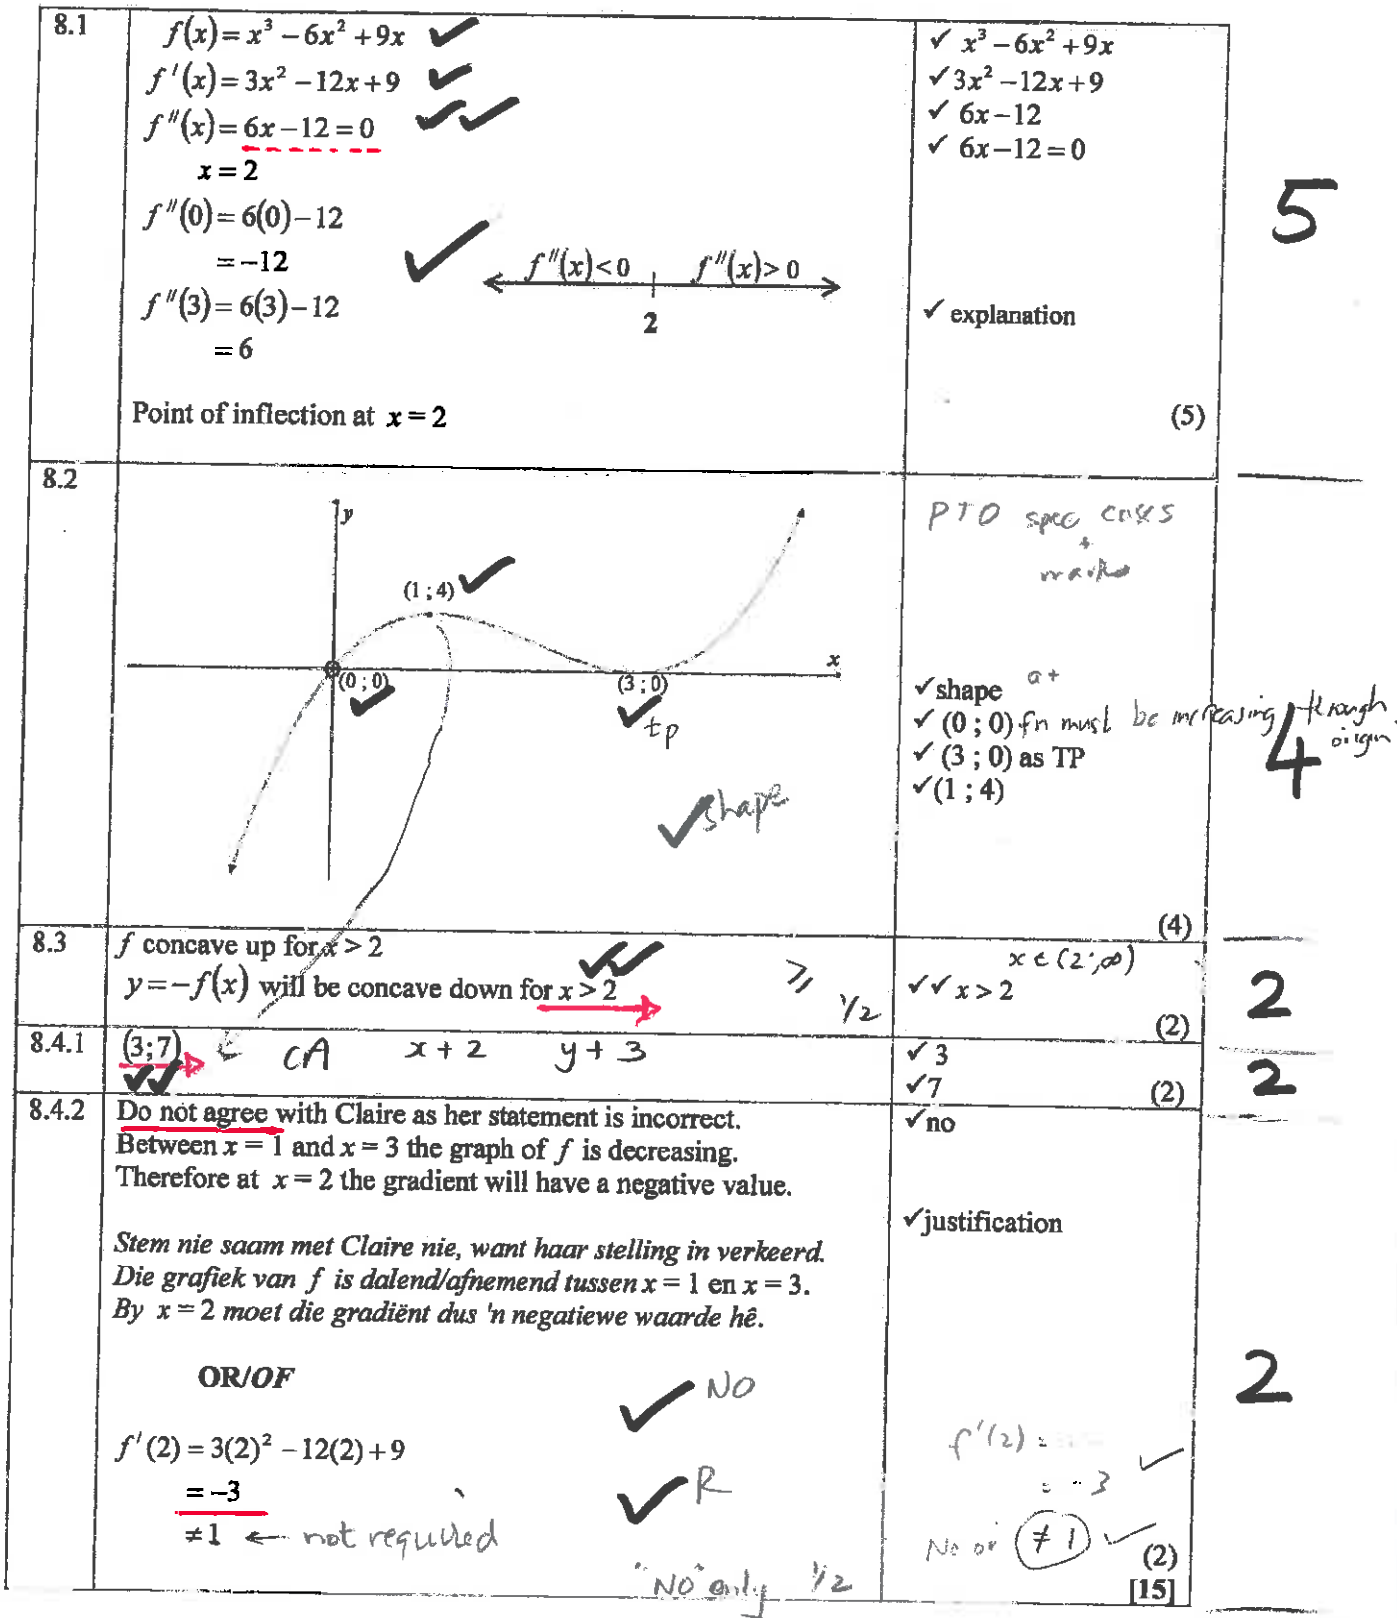 8.1
f(x) = x³ − 6x² + 9x ✓
f′(x) = 3x² − 12x + 9 ✓
f″(x) = 6x − 12 = 0 ✓✓
x = 2
f″(0) = 6(0) − 12
= −12
f″(3) = 6(3) − 12
= 6
✓
f″(x) < 0 f″(x) > 0
2
Point of inflection at x = 2
✓ x³ − 6x² + 9x
✓ 3x² − 12x + 9
✓ 6x − 12
✓ 6x − 12 = 0
✓ explanation
(5)
5
8.2
y
(1 ; 4) ✓
x
(0 ; 0) ✓
(3 ; 0) ✓ tp
✓ shape
PTO spec cases
+
marks
✓ shape
✓ (0 ; 0) fn must be increasing through origin
✓ (3 ; 0) as TP
✓ (1 ; 4)
(4)
4
8.3
f concave up for x > 2
y = −f(x) will be concave down for x > 2 ✓✓
⩾ 1/2
x ∈ (2 ; ∞)
✓✓ x > 2
(2)
2
8.4.1
(3;7) ✓✓ CA x + 2 y + 3
✓ 3
✓ 7
(2)
2
8.4.2
Do not agree with Claire as her statement is incorrect.
Between x = 1 and x = 3 the graph of f is decreasing.
Therefore at x = 2 the gradient will have a negative value.
Stem nie saam met Claire nie, want haar stelling in verkeerd.
Die grafiek van f is dalend/afnemend tussen x = 1 en x = 3.
By x = 2 moet die gradiënt dus 'n negatiewe waarde hê.
OR/OF
f′(2) = 3(2)² − 12(2) + 9
= −3
≠ 1 ← not required
✓ NO
✓ R
"NO" only 1/2
✓ no
✓ justification
f′(2) =
= −3 ✓
No or ≠ 1 ✓
(2)
[15]
2